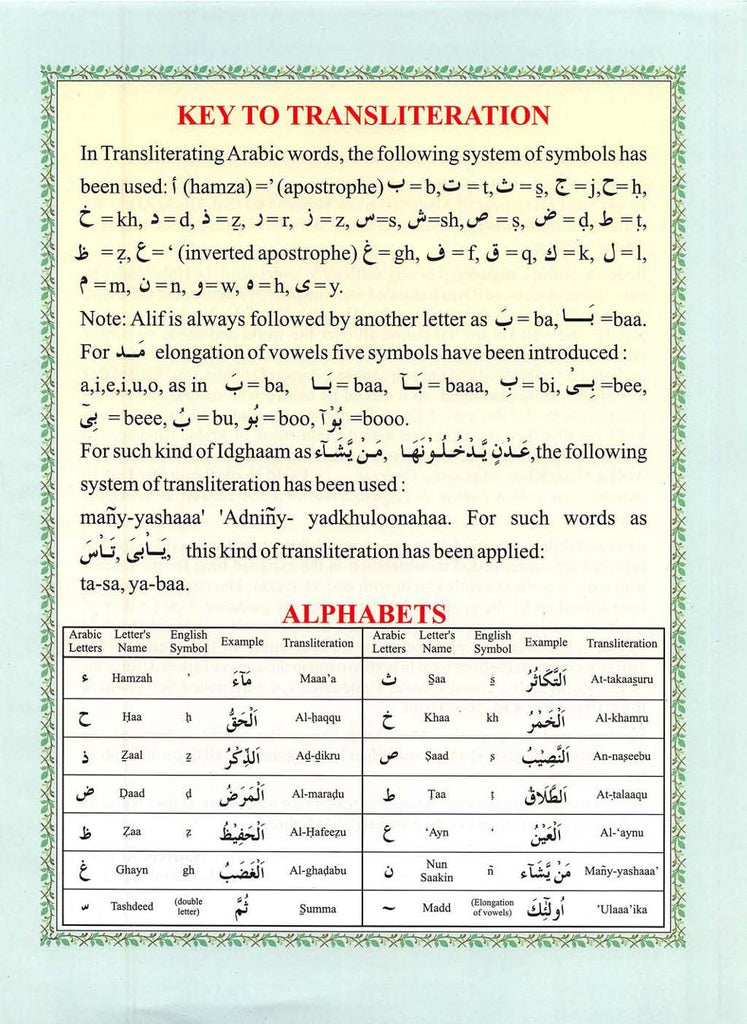 KEY TO TRANSLITERATION
In Transliterating Arabic words, the following system of symbols has
been used: أ (hamza) =’ (apostrophe) ب = b, ت = t, ث = s̱, ج = j, ح = ḥ,
خ = kh, د = d, ذ = ẕ, ر = r, ز = z, س = s, ش = sh, ص = ṣ, ض = ḍ, ط = ṭ,
ظ = ẓ, ع = ‘ (inverted apostrophe) غ = gh, ف = f, ق = q, ك = k, ل = l,
م = m, ن = n, و = w, ه = h, ى = y.
Note: Alif is always followed by another letter as بَ = ba, بَا = baa.
For مد elongation of vowels five symbols have been introduced :
a,i,e,i,u,o, as in بَ = ba, بَا = baa, بَآ = baaa, بِ = bi, بِى = bee,
بِىٓ = beee, بُ = bu, بُو = boo, بُوٓا = booo.
For such kind of Idghaam as مَنْ يَّشَآءُ, عَدْنٍ يَّدْخُلُوْنَهَا, the following
system of transliteration has been used :
mañy-yashaaa' 'Adniñy- yadkhuloonahaa. For such words as
يَابٰى, تَاسَ, this kind of transliteration has been applied:
ta-sa, ya-baa.
ALPHABETS
Arabic Letters Letter's Name English Symbol Example Transliteration Arabic Letters Letter's Name English Symbol Example Transliteration
ء Hamzah ’ مَآءً Maaa’a ث S̱aa s̱ اَلتَّكَاثُرُ At-takaas̱uru
ح Ḥaa ḥ اَلْحَقُّ Al-ḥaqqu خ Khaa kh اَلْخَمْرُ Al-khamru
ذ Ẕaal ẕ اَلذِّكْرُ Aḏ-ḏikru ص Ṣaad ṣ اَلنَّصِيْبُ An-naṣeebu
ض Ḍaad ḍ اَلْمَرَضُ Al-maraḍu ط Ṭaa ṭ اَلطَّلَاقُ At-ṭalaaqu
ظ Ẓaa ẓ اَلْحَفِيْظُ Al-Ḥafeeẓu ع ‘Ayn ‘ اَلْعَيْنُ Al-‘aynu
غ Ghayn gh اَلْغَضَبُ Al-ghaḍabu ن Nun Saakin ñ مَنْ يَّشَآءُ Mañy-yashaaa’
ّ Tashdeed (double letter) ثُمَّ S̱umma ~ Madd (Elongation of vowels) اُولٰٓئِكَ ’Ulaaa’ika